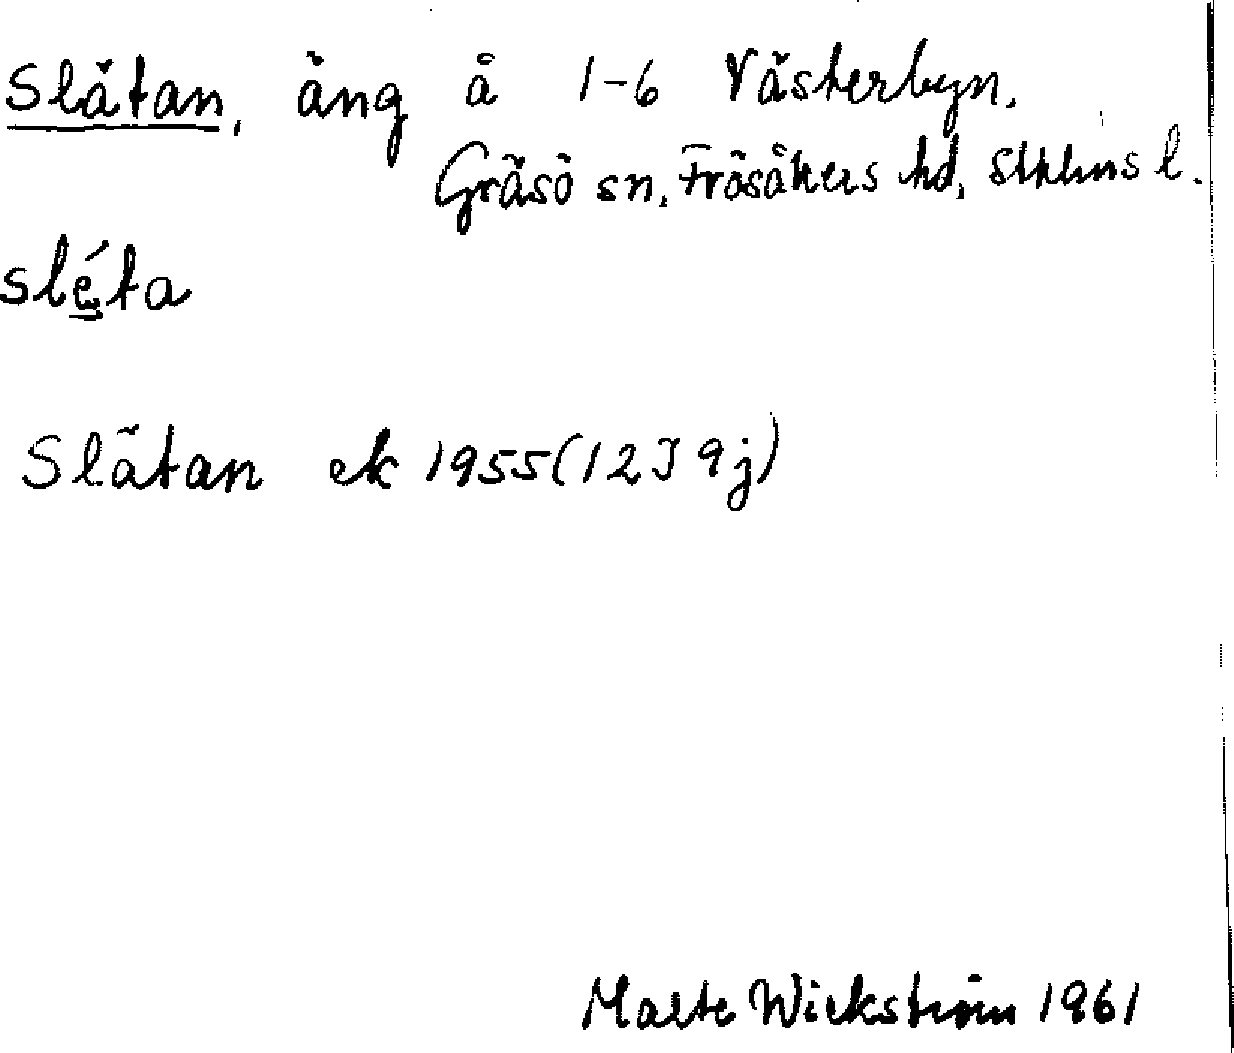 Slätan, äng å 1-6 Västerbyn.
Gräsö sn, Frösåkers hd, Sthlms l.
slé̱ta
Slätan ek 1955 (12J 9j)
Malte Wickström 1961